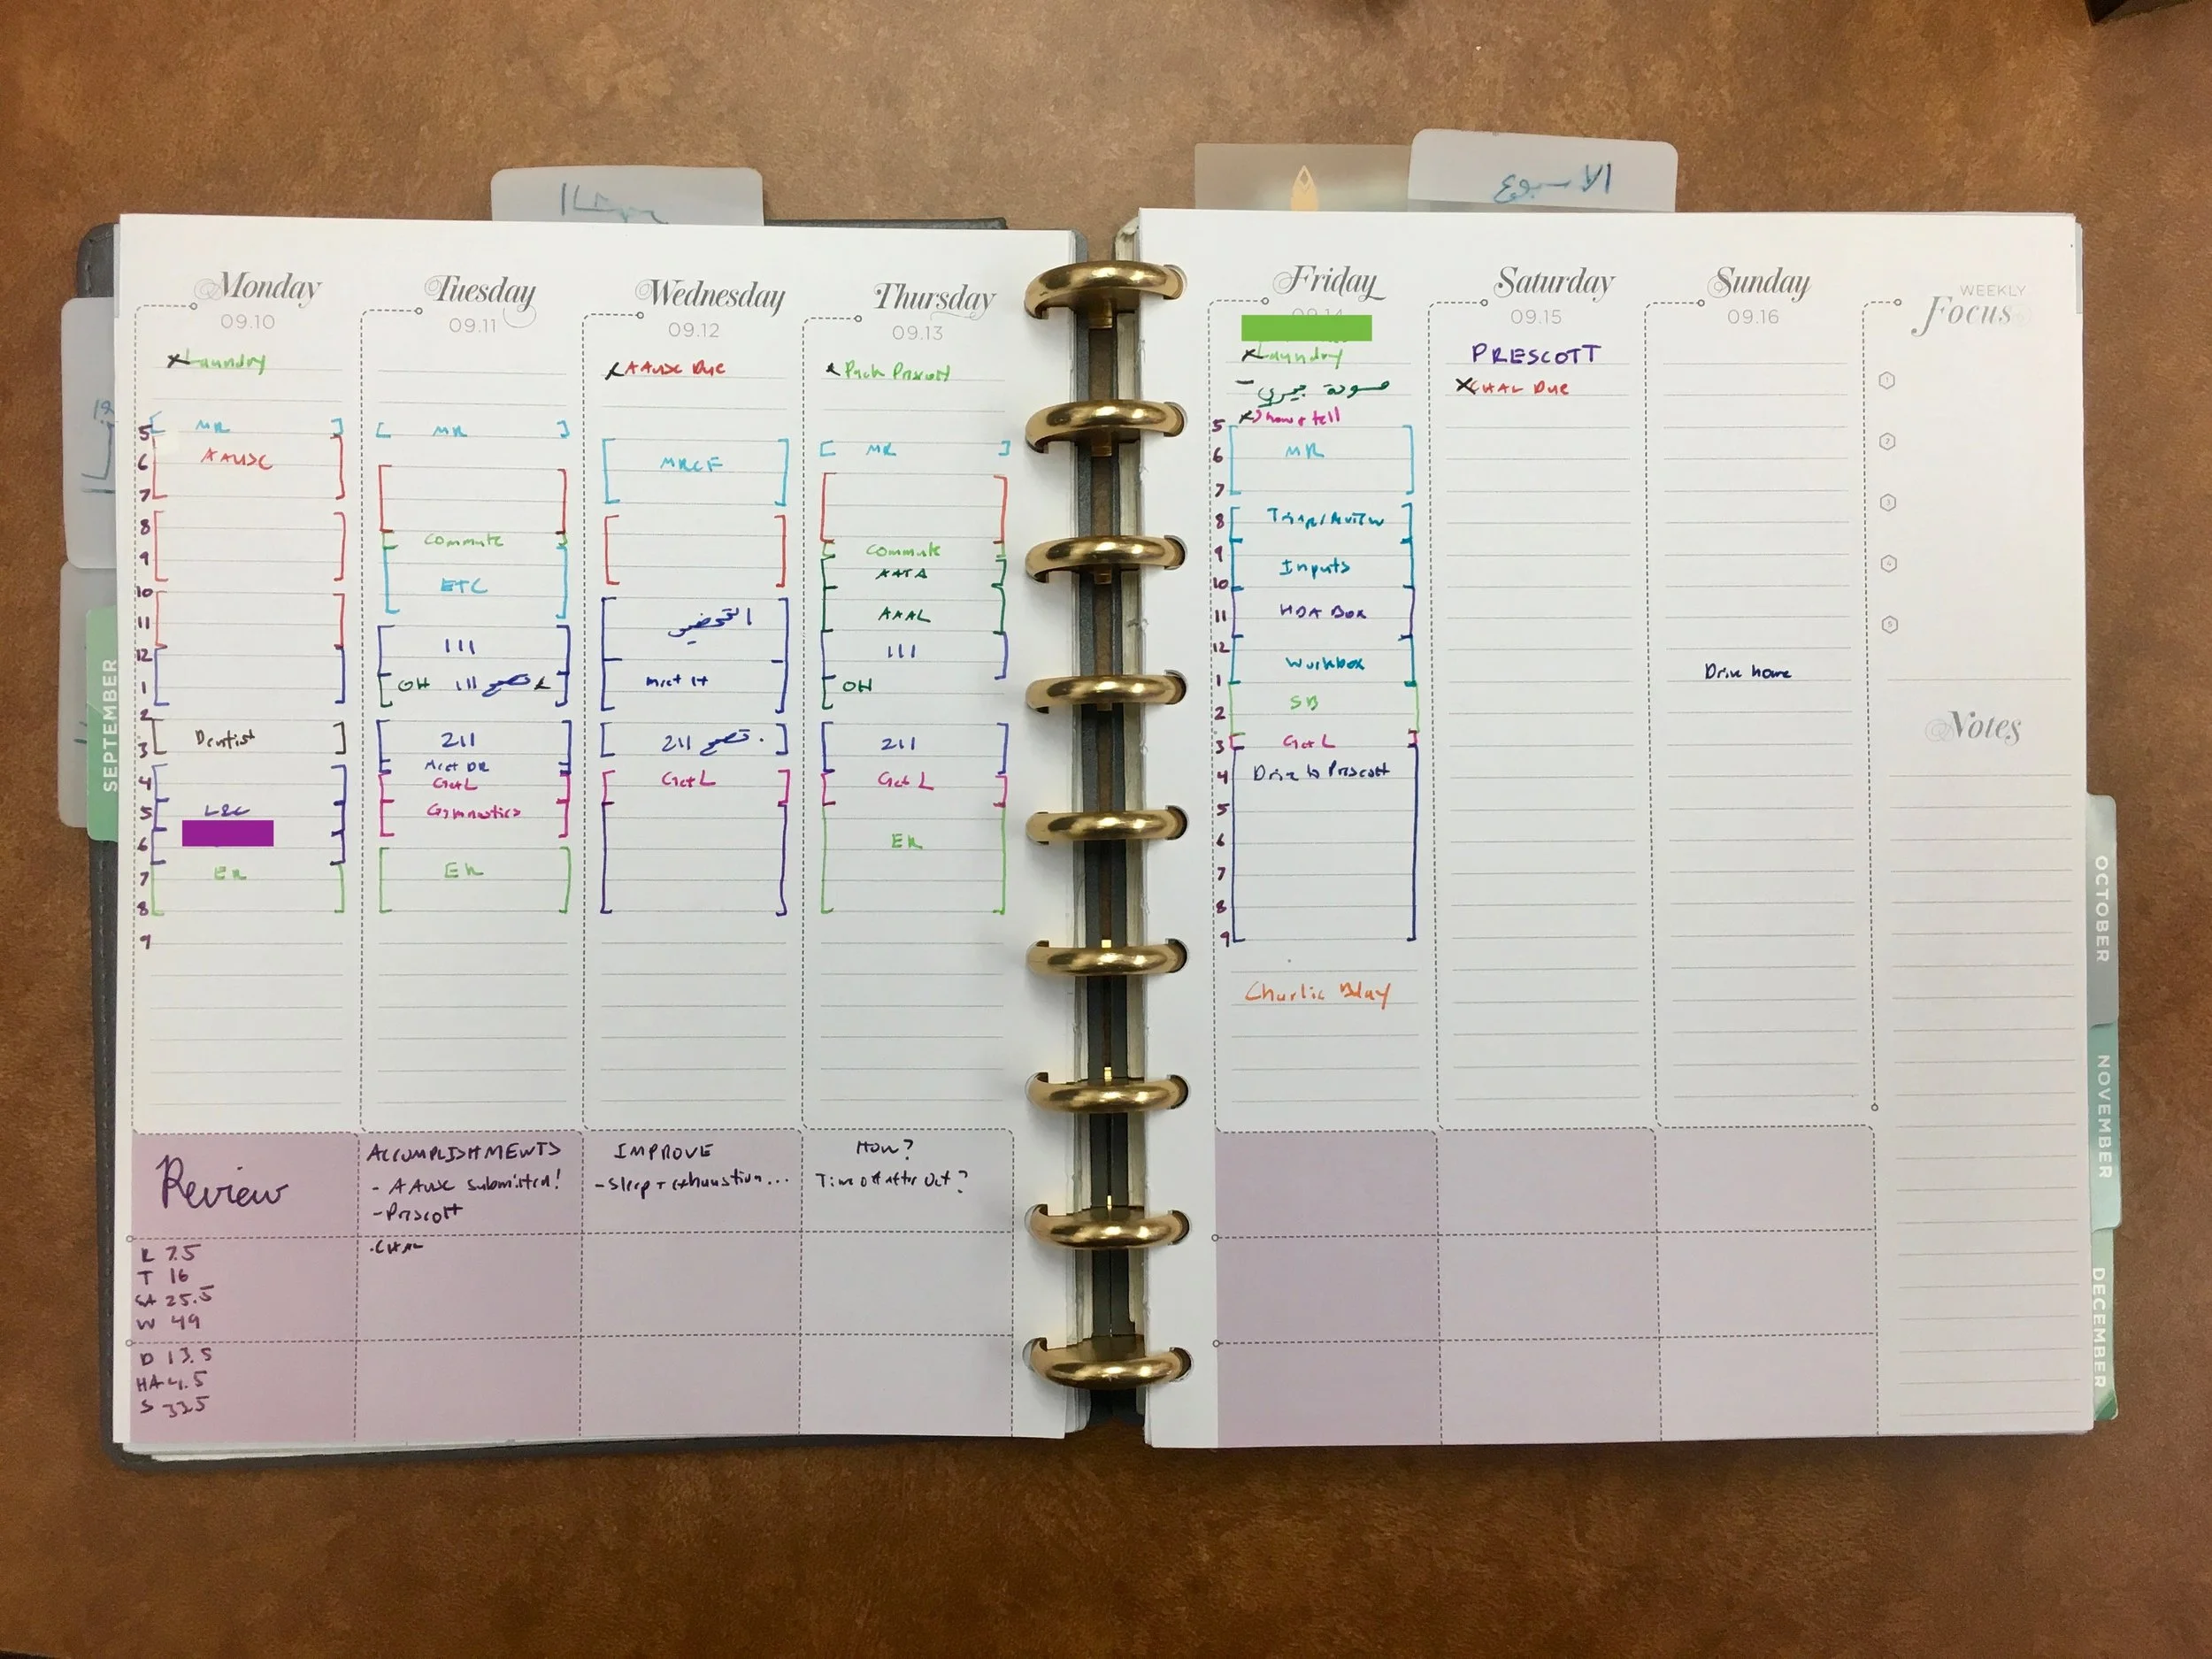 الاسبوع
Monday
09.10
Laundry
5
[ MR ]
6
AAUSC
7
8
9
10
11
12
1
2
Dentist
3
4
5
L&C
6
7
ER
8
9
Tuesday
09.11
[ MR ]
Commute
ETC
111
OH 111 تصحيح
211
Meet DR
Get L
Gymnastics
ER
Wednesday
09.12
AAUSC Due
MRCF
التحضير
Meet 1t
211 تصحيح
Get L
Thursday
09.13
Pack Prescott
[ MR ]
Commute
AATA
AAAL
111
OH
211
Get L
ER
Friday
Laundry
Show & tell
5
6
MR
7
8
9
Inputs
10
11
HDA Box
12
Workbox
1
SB
2
3
Get L
4
Drive to Prescott
5
6
7
8
9
Charlie Bday
Saturday
09.15
PRESCOTT
CHAL Due
Sunday
09.16
Drive home
WEEKLY
Focus
1
2
3
4
5
Notes
Review
ACCOMPLISHMENTS
- AAUSC submitted!
- Prescott
- CHAL
IMPROVE
- Sleep + exhaustion...
How?
Time off after Oct?
R 7.5
T 16
SA 25.5
W 49
D 13.5
HA 4.5
S 33.5
SEPTEMBER
OCTOBER
NOVEMBER
DECEMBER